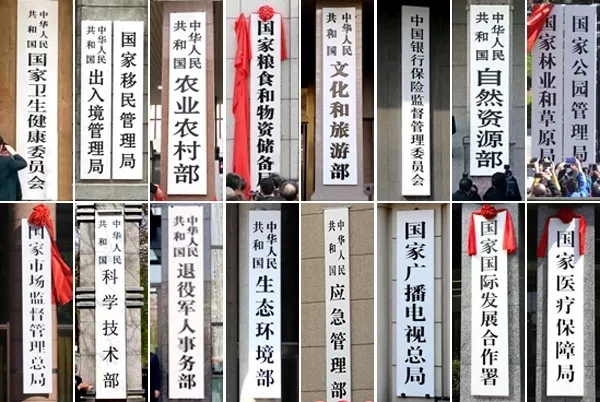 中华人民
共和国
国家卫生健康委员会
中华人民
共和国
出入境管理局
国家移民管理局
中华人民
共和国
农业农村部
国家粮食和物资储备局
中华人民
共和国
文化和旅游部
中国银行保险监督管理委员会
中华人民
共和国
自然资源部
国家林业和草原局
国家公园管理局
国家市场监督管理总局
中华人民
共和国
科学技术部
中华人民
共和国
退役军人事务部
中华人民
共和国
生态环境部
中华人民
共和国
应急管理部
国家广播电视总局
国家国际发展合作署
国家医疗保障局